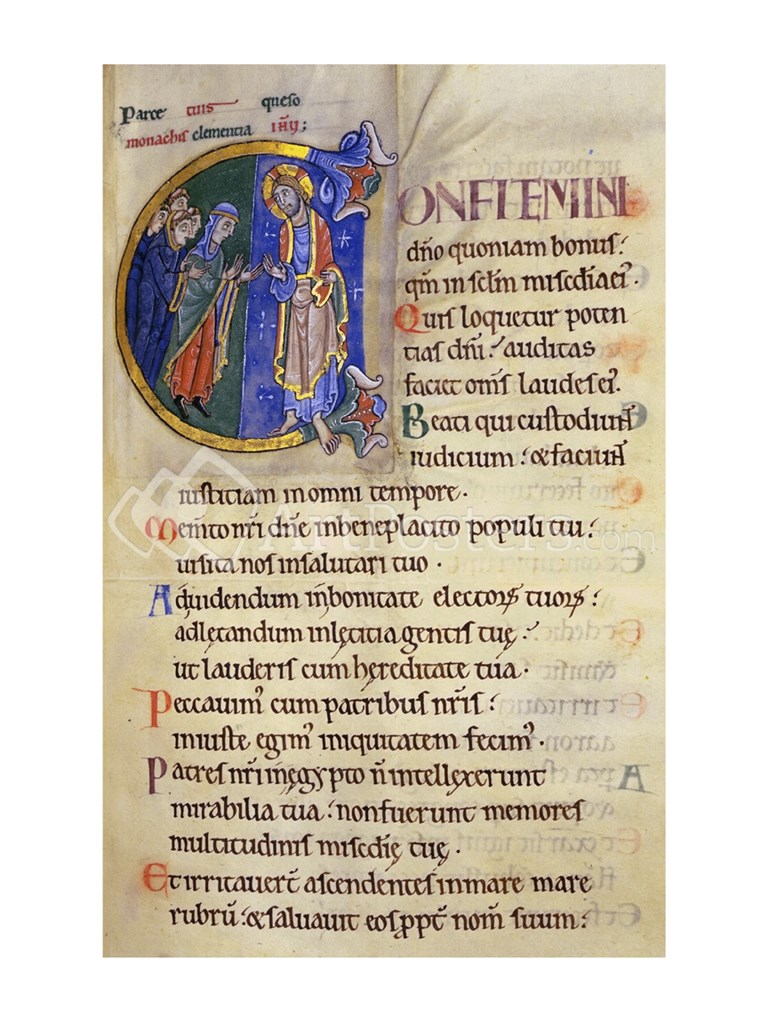 Parce tuis queso
monachis clementia IH̄U;
CONFITEMINI
dn̄o quoniam bonus:
qm̄ in sc̄lm misc̄dia ei᾽.
Quis loquetur poten
tias dn̄i: auditas
faciet om̄s laudes ei᾽.
Beati qui custodiunt
iudicium: & faciunt
iustitiam in omni tempore.
Mem̄to nr̄i dn̄e in beneplacito populi tui:
uisita nos in salutari tuo.
Ad uidendum in bonitate electorꝝ tuorꝝ:
ad lętandum in lętitia gentis tuę:
ut lauderis cum hęreditate tua.
Peccauim᾽ cum patribus nr̄is:
iniuste egim᾽ iniquitatem fecim᾽.
Patres nr̄i in ęgypto n̄ intellexerunt
mirabilia tua: non fuerunt memores
multitudinis misc̄dię tuę.
Et irritauer̄t ascendentes in mare mare
rubrū: & saluauit eos ꝓpt̄ nom̄ suum:
ArtPosters.com